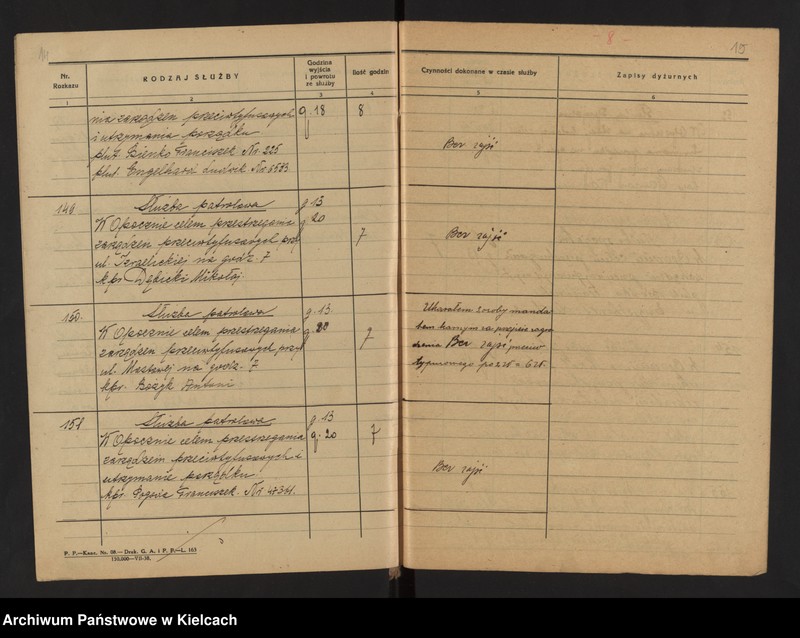 14
- 8 -
15
Nr. Rozkazu
RODZAJ SŁUŻBY
Godzina wyjścia i powrotu ze służby
Ilość godzin
Czynności dokonane w czasie służby
Zapisy dyżurnych
1 2 3 4 5 6
nia zarządzeń przeciwtyfusowych g. 18 8
i utrzymania porządku
plut. Franciszek Nr. 225 Bez zajść
plut. Engelhard Ludwik Nr.
149 Służba patrolowa g 13
W Opocznie celem przestrzegania g 20
zarządzeń przeciwtyfusowych przy 7 Bez zajść
ul. Izraelickiej na godz. 7
kpr Dębicki Mikołaj.
150. Służba patrolowa g. 13.
W Opocznie celem przestrzegania g. 20
zarządzeń przeciwtyfusowych przy 7
ul. Mostowej na godz. 7
kpr. Bożyk Antoni
Ukarałem osoby manda
tem karnym za przejście zagro
dzenia Bez zajść przeciw
tyfusowego po 2 zł = 6 zł.
151 Służba patrolowa g 13
W Opocznie celem przestrzegania g. 20 7
zarządzeń przeciwtyfusowych i
utrzymanie porządku. Bez zajść
kpr. Franciszek. Nr.
P. P.—Kanc. Nr. 08.— Druk. G. A. i P. P.—L. 163
150.000—VII-38.
Archiwum Państwowe w Kielcach